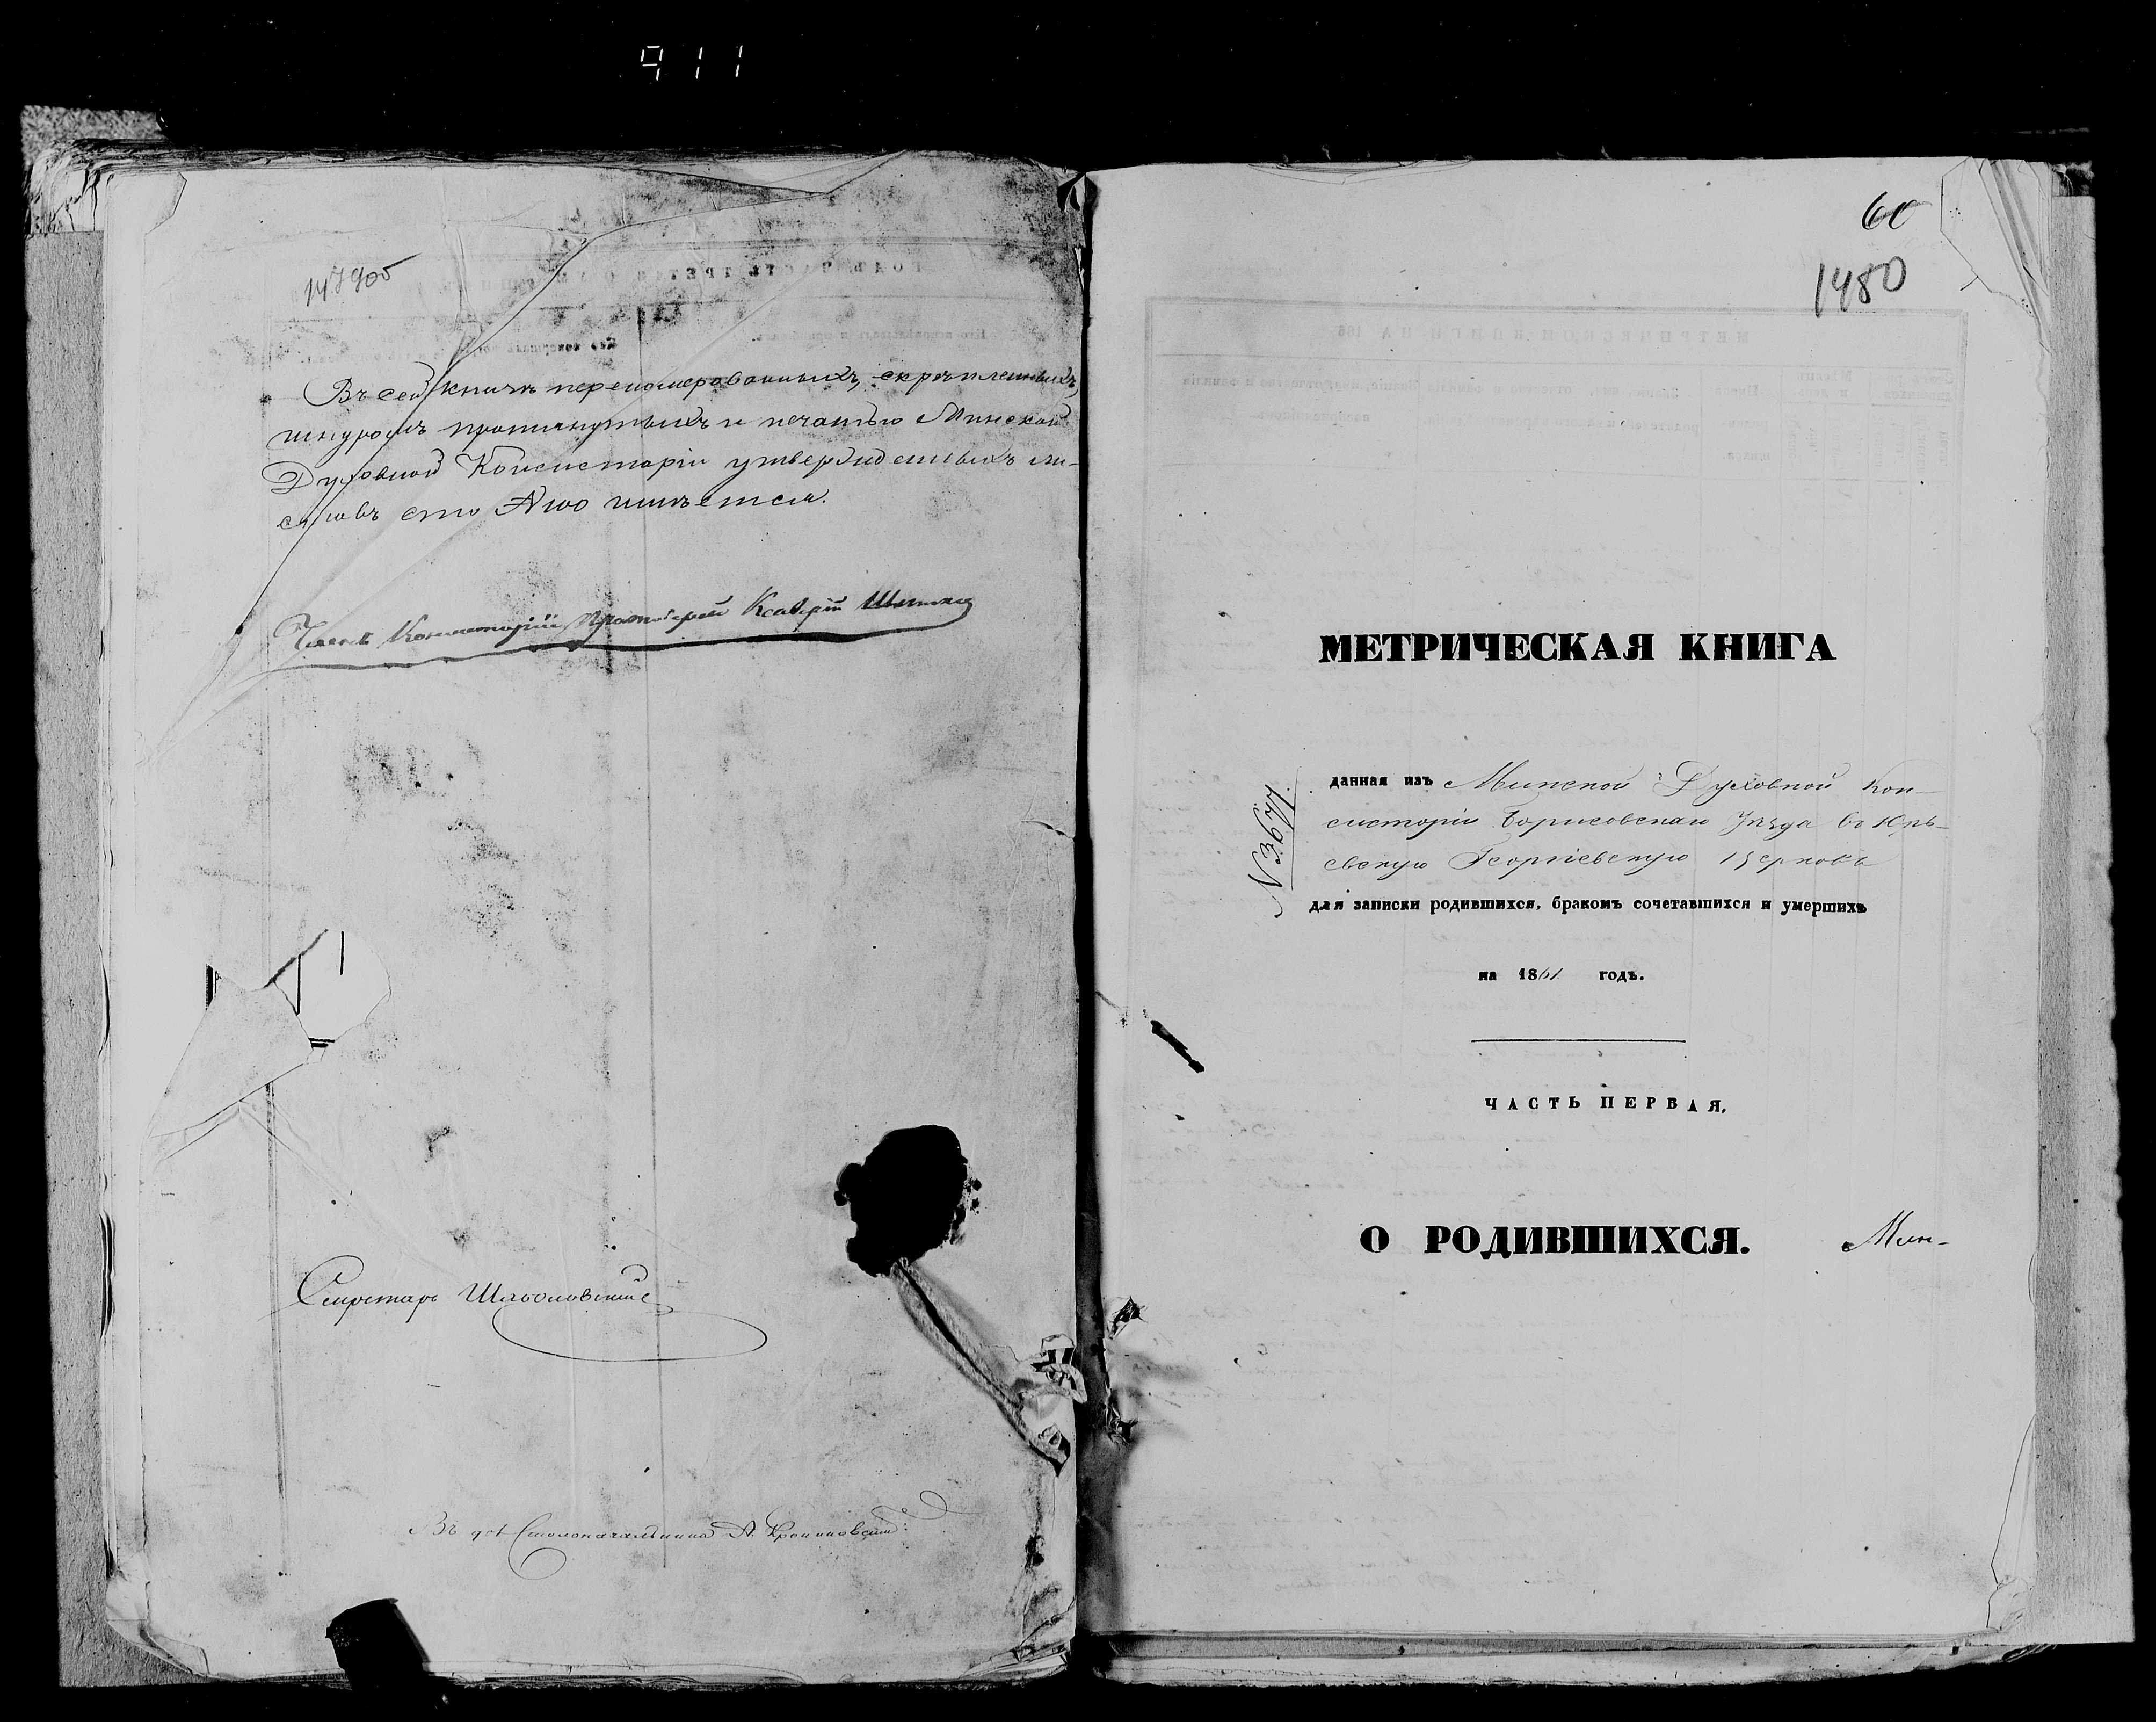 911
147905
Въ сей книгѣ перенумерованныхъ, скрѣпленныхъ,
шнуромъ протянутыхъ и печатью Минской
Духовной Консисторіи утвержденныхъ ли-
стовъ сто имѣется.
Членъ Консисторіи Протоіерей
Секретарь
Въ Столоначальника А.
60
1480
МЕТРИЧЕСКАЯ КНИГА
№ 3677
данная изъ Минской Духовной Кон-
систоріи Борисовскаго Уѣзда въ Юрь-
евскую Георгіевскую Церковь
для записки родившихся, бракомъ сочетавшихся и умершихъ
на 1861 годъ.
ЧАСТЬ ПЕРВАЯ.
О РОДИВШИХСЯ.
Мин-